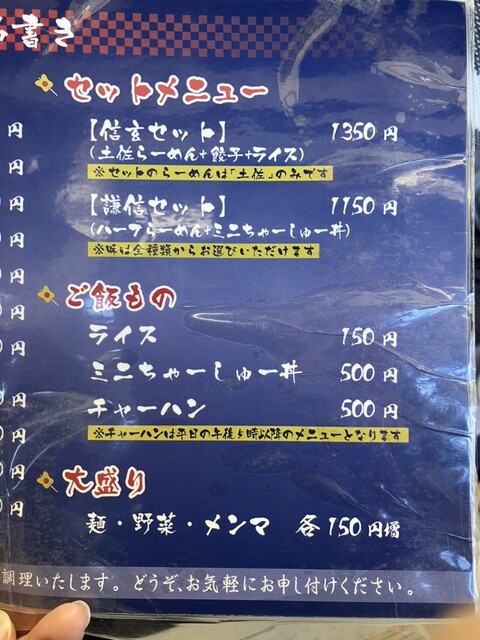 書き
セットメニュー
円
【信玄セット】 1350円
(土佐らーめん+餃子+ライス)
円
※セットのらーめんは「土佐」のみです
円
【謙信セット】 1150円
(ハーフらーめん+ミニちゃーしゅー丼)
円
※味は全種類からお選びいただけます
円
ご飯もの
円
ライス 150円
円
ミニちゃーしゅー丼 500円
円
チャーハン 500円
円
※チャーハンは平日の午後5時以降のメニューとなります
円
大盛り
円
麺・野菜・メンマ 各150円増
調理いたします。どうぞ、お気軽にお申し付けください。